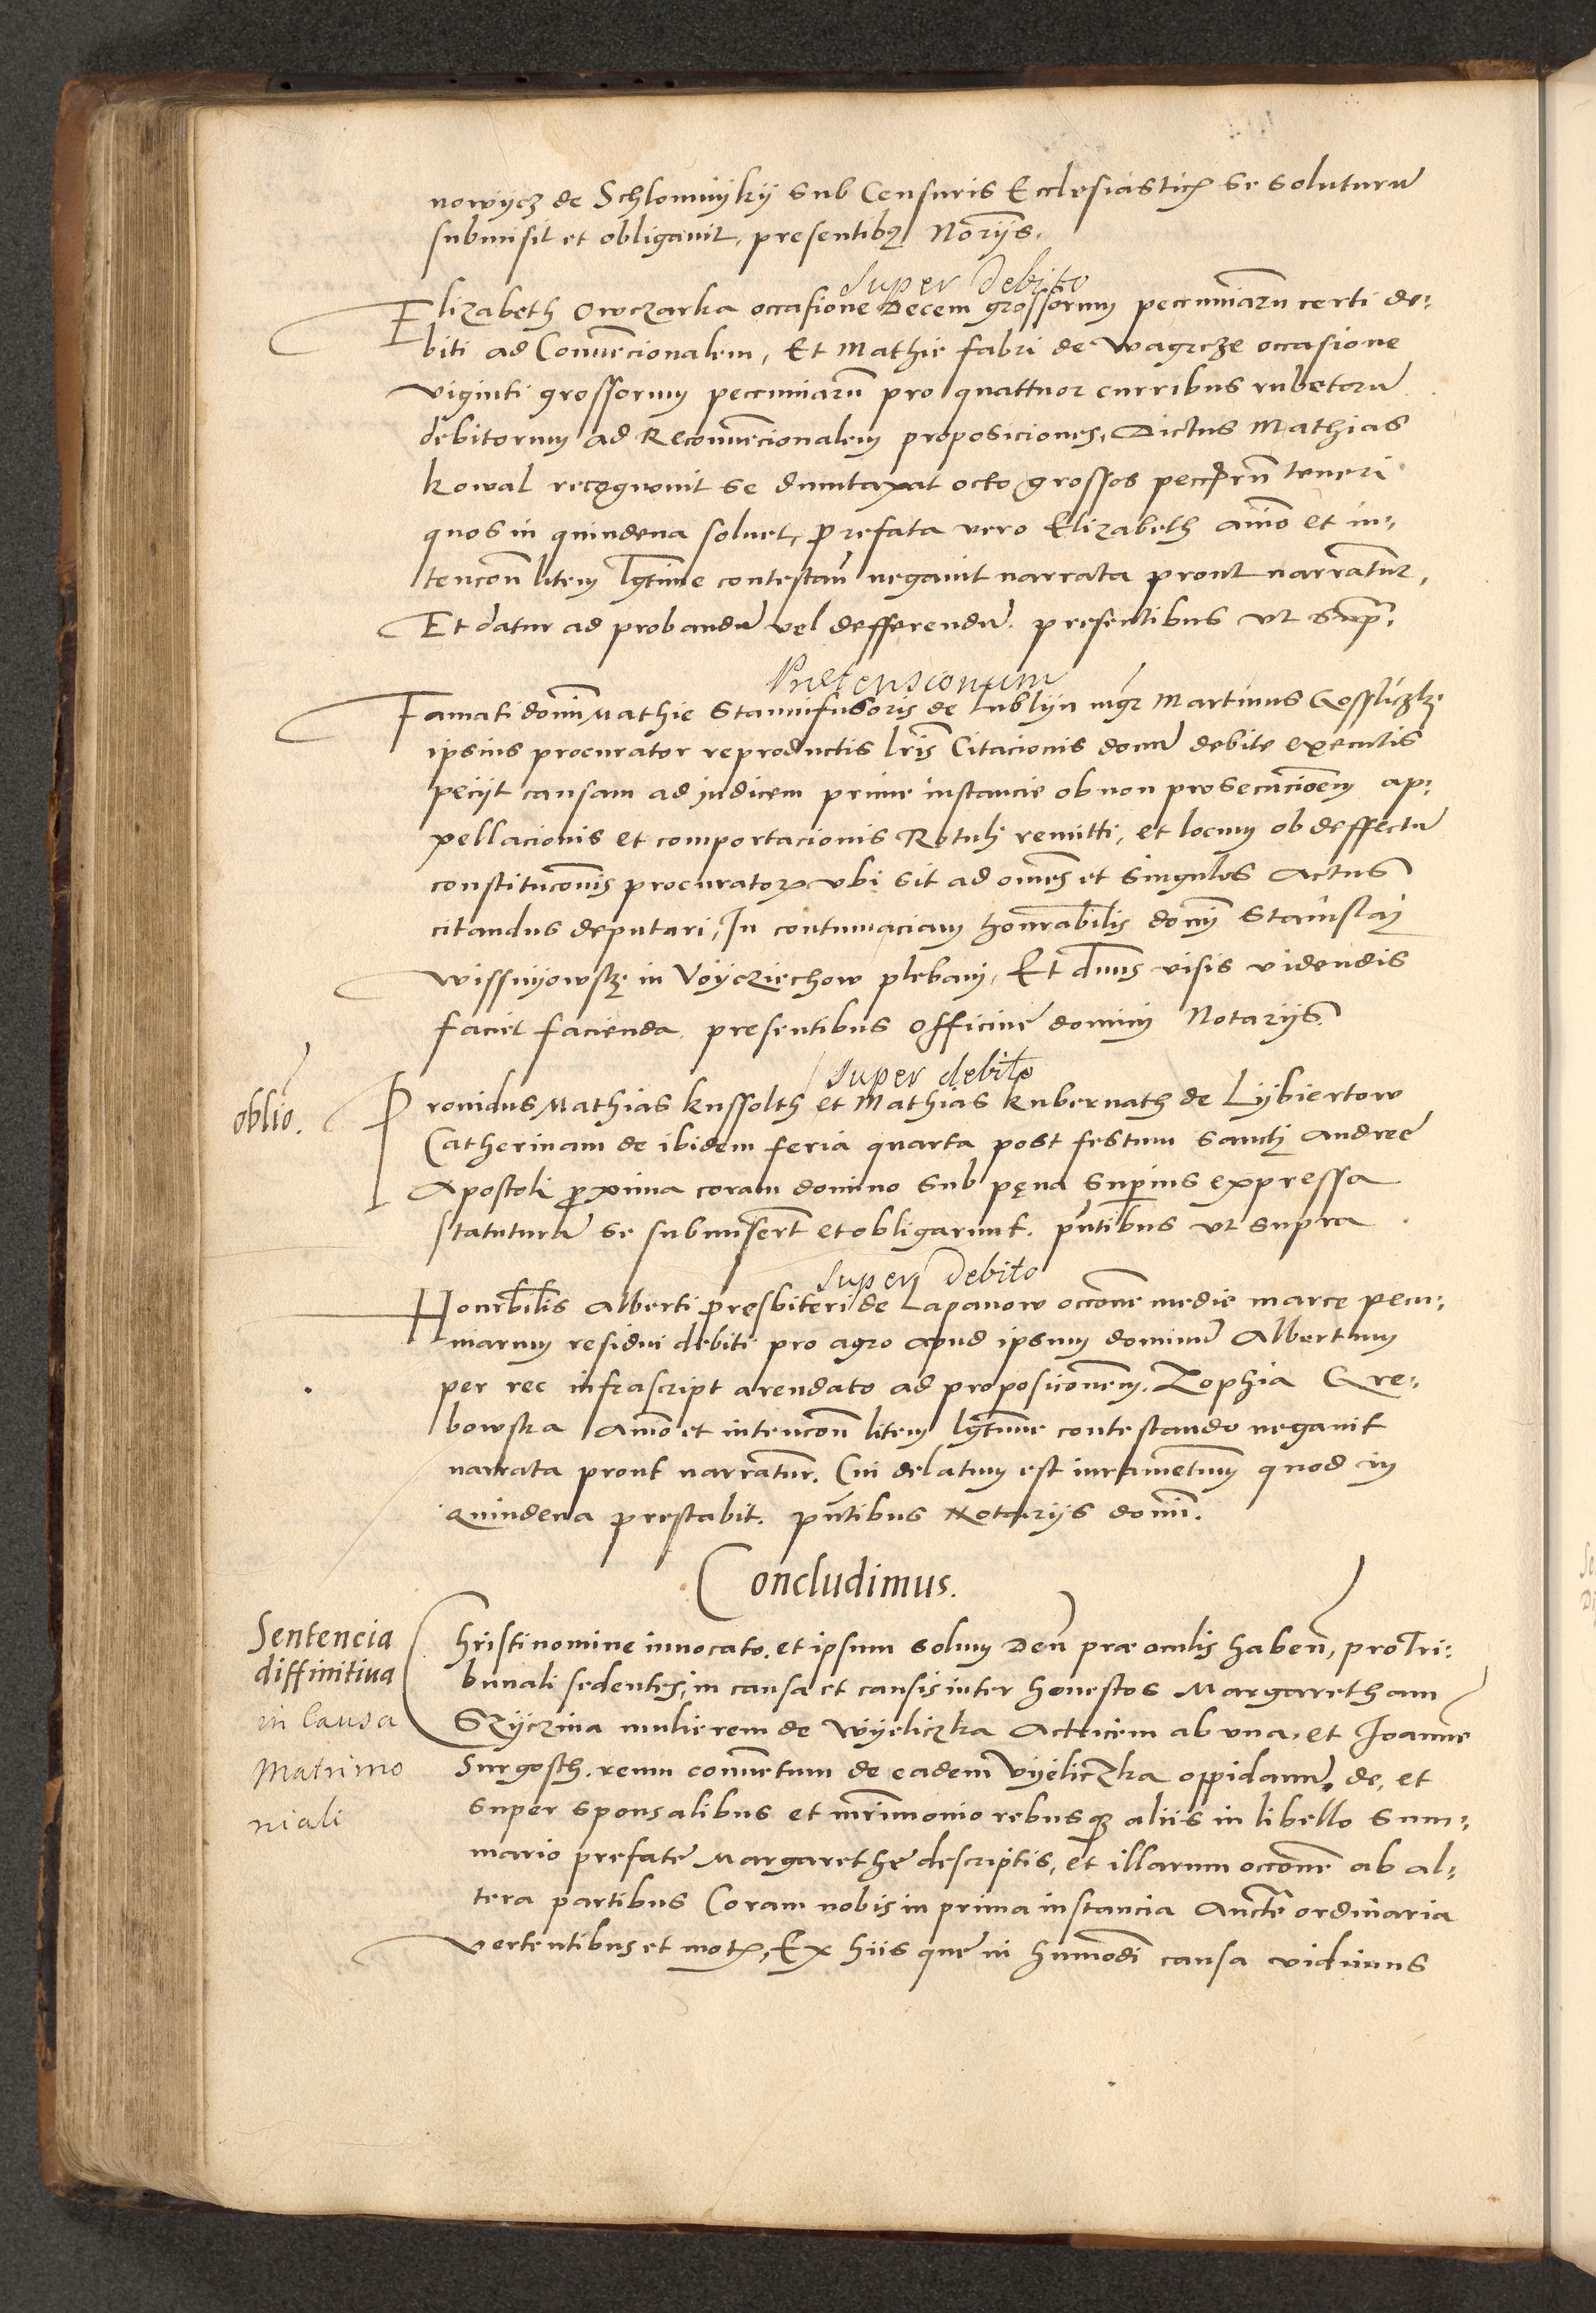 nowycz de Schlomnyky sub Censuris Ecclesiasticȝ se soluturū
submisit et obligauit, presentibȝ Norijs.
Super Debito
Elizabeth Owczarka occasione Decem grossorum pecuniarū certi de⸗
biti ad Conuēcionalem, Et Mathie fabri de Wagrcze occasione
viginti grossorum pecuniarū pro quattuor curribus rubetorū
debitorum ad Reconuēcionalem proposiciones, Dictus Mathias
kowal recognouit se dumtaxat octo grossos teneri
quos in quindena soluet, prefata vero Elizabeth aīmo et in⸗
tencoñ litem lgtime contestañ negauit narrata prout narrātur,
Et datur ad probandū vel defferendū. presentibus vt supᵃ.
Pretensionum
Famati domī Mathie Stannifusoris de Lublyn mgr Martinus
ipsius procurator reproductis lris Citacionis domū debite executis
pecijt causam ad judicem prime instancie ob non prosecucioēm ap⸗
pellacionis et comportacionis Rotuli remitti, et locum ob deffectū
constituconis procuratorȝ vbi sit ad om̄es et singulos Actus
citandus deputari, In contumaciam honrabilis domī Stanislaj
in Voyciechow plebani, Et dn̄us visis videndis
faciet facienda. presentibus officine domini Notarijs.
Super debito
oblio.
Prouidus Mathias kussolth et Mathias kubernath de Lybiertow
Catherinam de ibidem feria quarta post festum sancti Andree
Apostoli proxima coram domino sub pęna superius expressa
statuturū se submiserūt et obligarunt. pn̄tibus vt supra.
Super Debito
Honrbilis Alberti presbiteri de Lapanow occone medie marce pecu⸗
niarum residui debiti pro agro apud ipsum dominū Albertum
per rec infrascript arendato ad proposiconem. Zophia Gre⸗
bowska Aīmo et intencoñ litem lgtime contestando negauit
narrata prout narratur. Cui delatum est iuramentum quod in
quindena prestabit. pn̄tibus Notarijs domī.
Concludimus.
Sentencia
diffinitiua
in Causa
Matrimo
niali
Christi nomine inuocato, et ipsum solum Deū præ oculis habeñ, pro Tri⸗
bunali sedentes, in causa et causis inter honestos Margaretham
Szyczina mulierem de Wyeliczka Actricem ab vna, et Joannē
Surgosth. reum conuentum de eadem Vyeliczka oppidanū, de, et
super sponsalibus et mrimonio rebusqȝ aliis in libello sum⸗
mario prefate Margarethe descriptis, et illarum occone ab al⸗
tera partibus Coram nobis in prima instancia Aucte ordinaria
vertentibus et motȝ, Ex hiis que in hmōdi causa vidimus